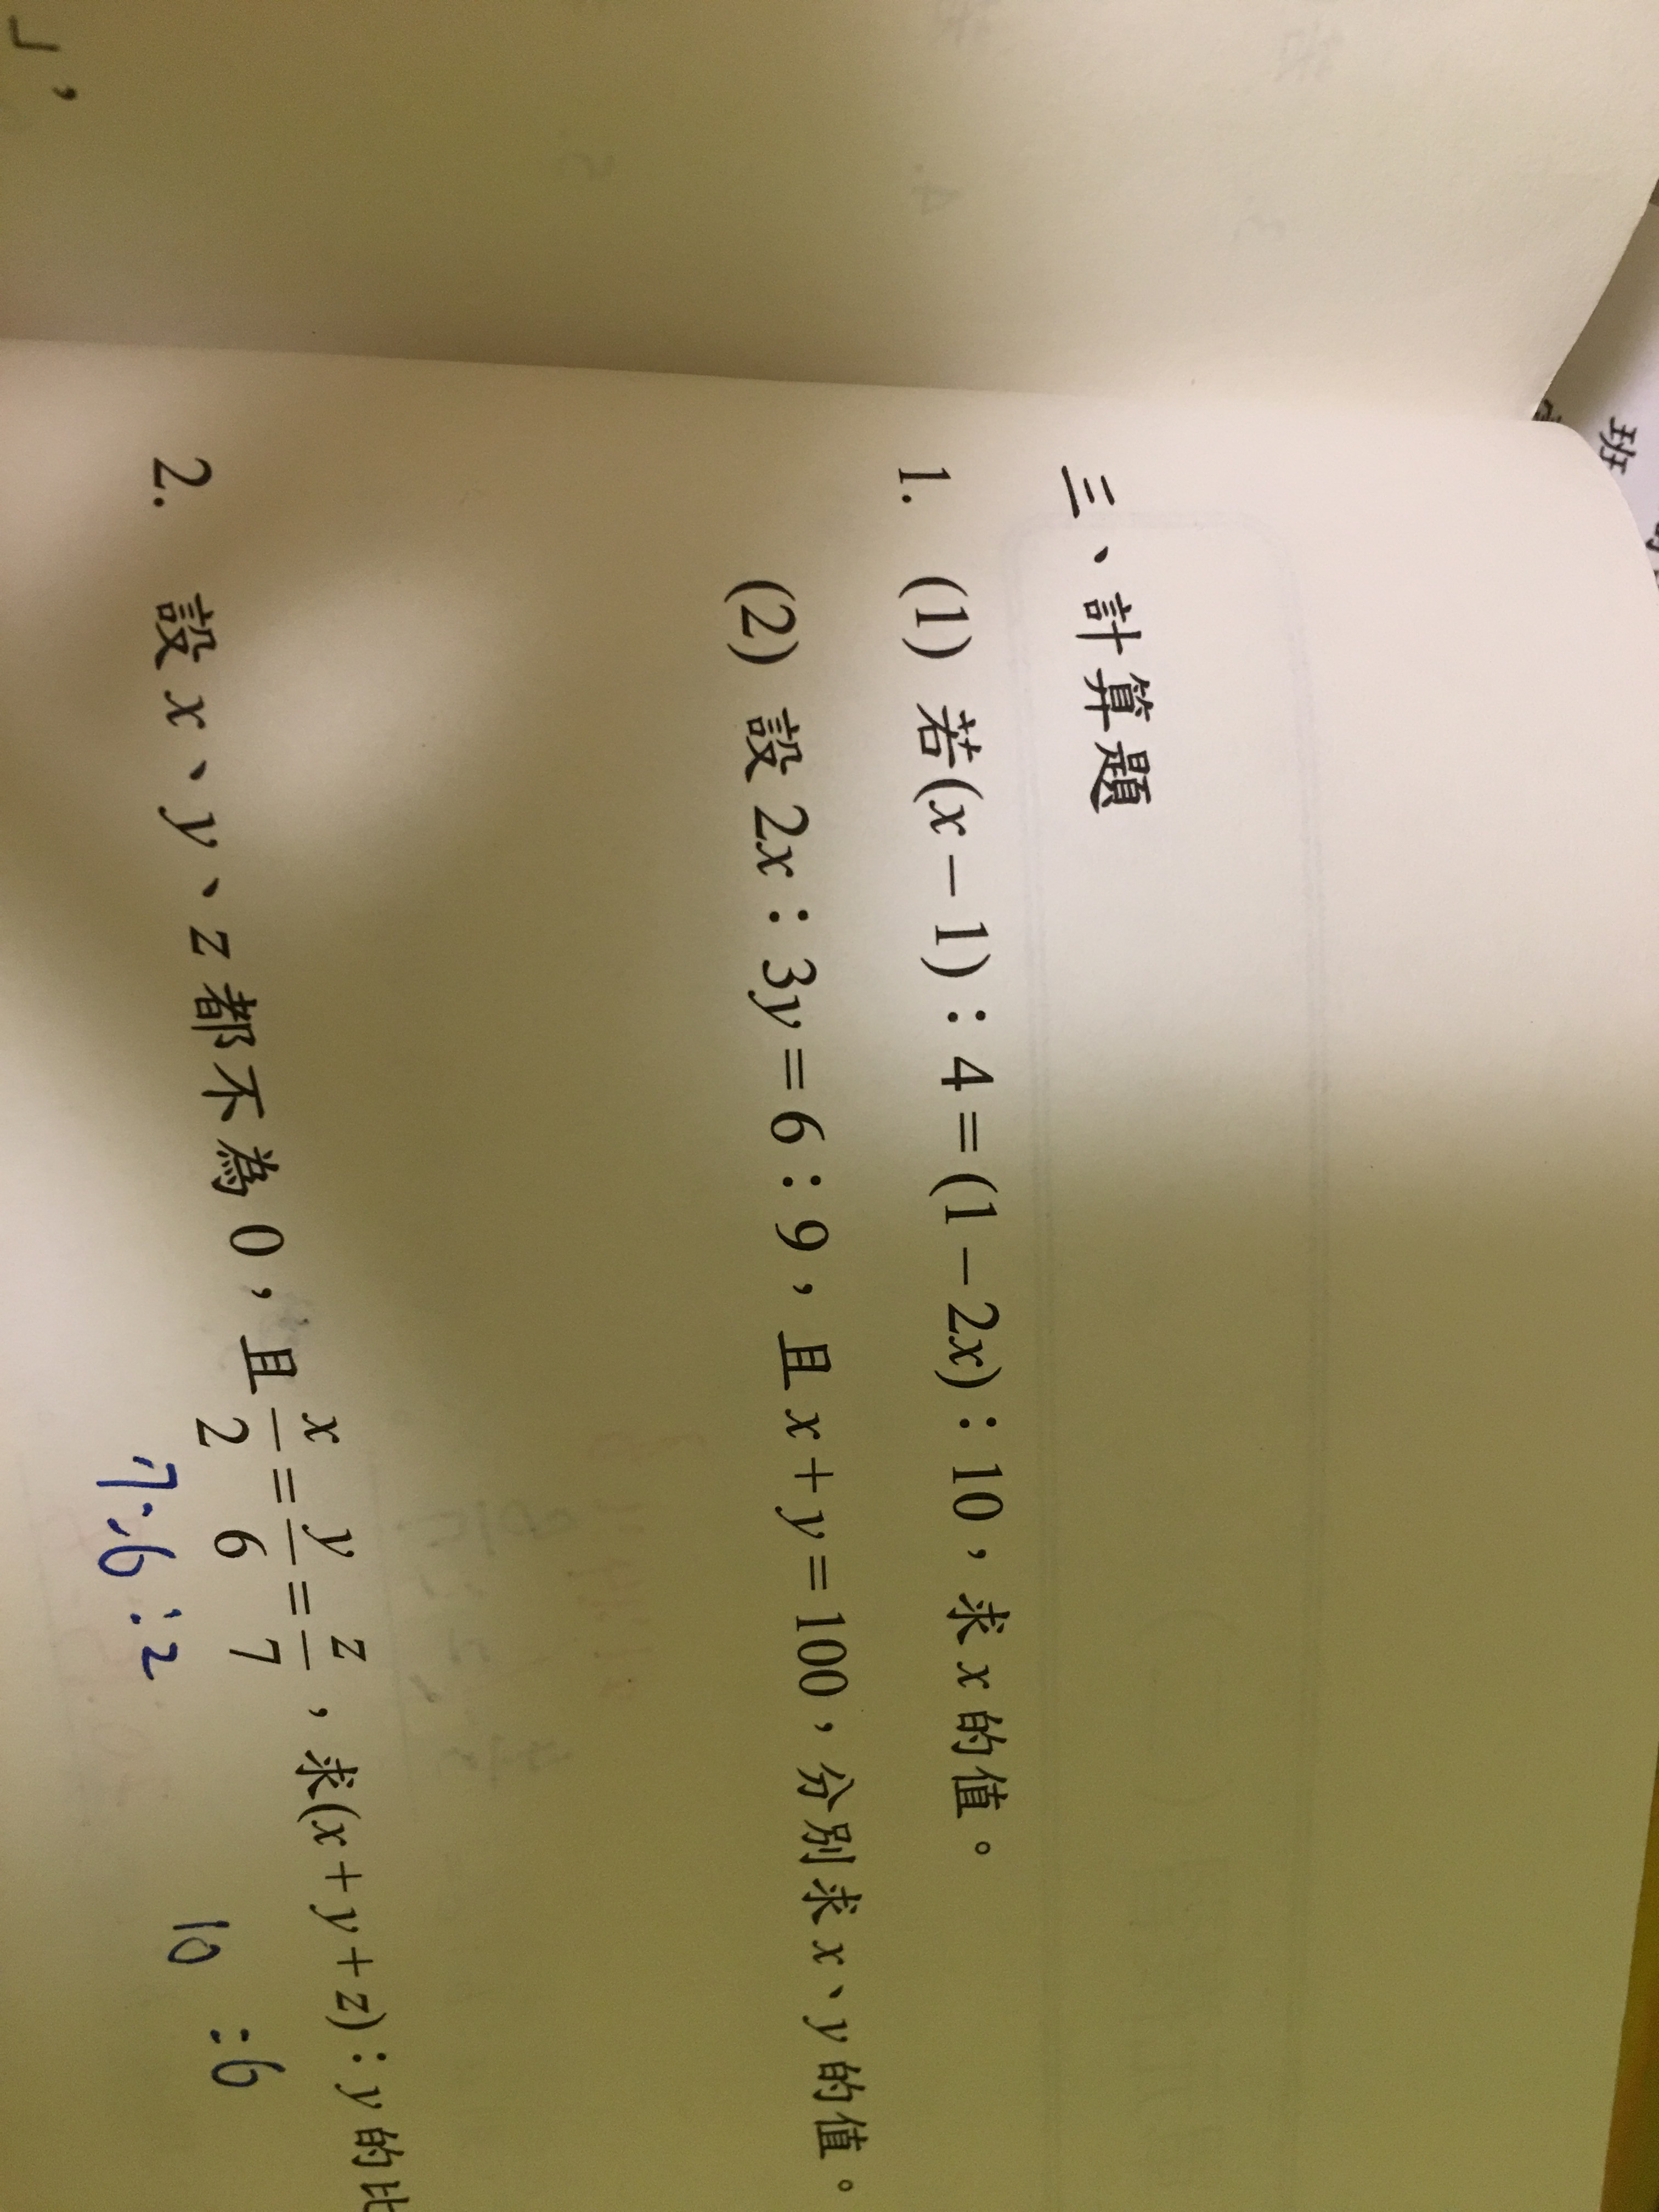 三、計算題
1. (1) 若(x－1)：4＝(1－2x)：10，求x的值。
(2) 設2x：3y＝6：9，且x＋y＝100，分別求x、y的值。
2. 設x、y、z都不為0，且x/2＝y/6＝z/7，求(x＋y＋z)：y的比
7:6:2
10:6
班